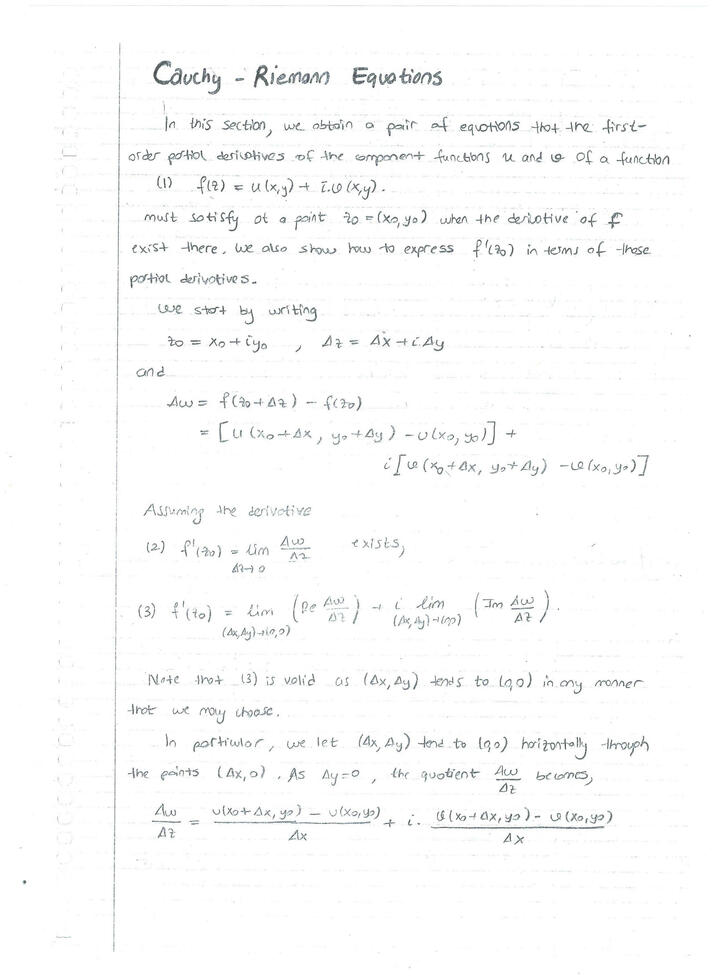 Cauchy - Riemann Equations
In this section, we obtain a pair of equations that the first-
order partial derivatives of the component functions u and v of a function
(1) f(z) = u(x,y) + i.v(x,y).
must satisfy at a point z0 = (x0,y0) when the derivative of f
exist there. We also show how to express f'(z0) in terms of those
partial derivatives.
We start by writing
z0 = x0 + iy0 , Δz = Δx + i.Δy
and
Δw = f(z0 + Δz) - f(z0)
= [u(x0+Δx, y0+Δy) - u(x0,y0)] +
i[v(x0+Δx, y0+Δy) - v(x0,y0)]
Assuming the derivative
(2) f'(z0) = lim Δz→0 Δw/Δz exists,
(3) f'(z0) = lim (Δx,Δy)→(0,0) (Re Δw/Δz) + i lim (Δx,Δy)→(0,0) (Im Δw/Δz).
Note that (3) is valid as (Δx,Δy) tends to (0,0) in any manner
that we may choose.
In particular, we let (Δx,Δy) tend to (0,0) horizontally through
the points (Δx,0). As Δy=0, the quotient Δw/Δz becomes,
Δw/Δz = u(x0+Δx,y0) - u(x0,y0)/Δx + i. v(x0+Δx,y0) - v(x0,y0)/Δx